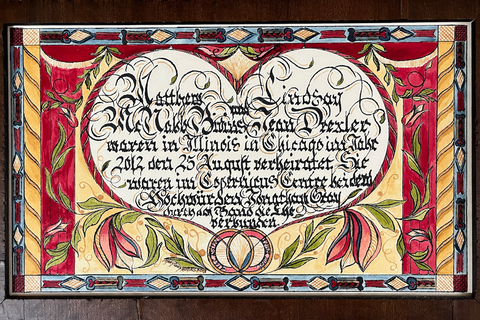 Matthew und Lindsay
McNabb Brown Jean Drexler
waren in Illinois in Chicago im Jahr
2012 den 25 August verheiratet Sie
waren im Copernicus Centre bei dem
Hochwürden Jonathan Gray
durch das Band die Ehe
verbunden.